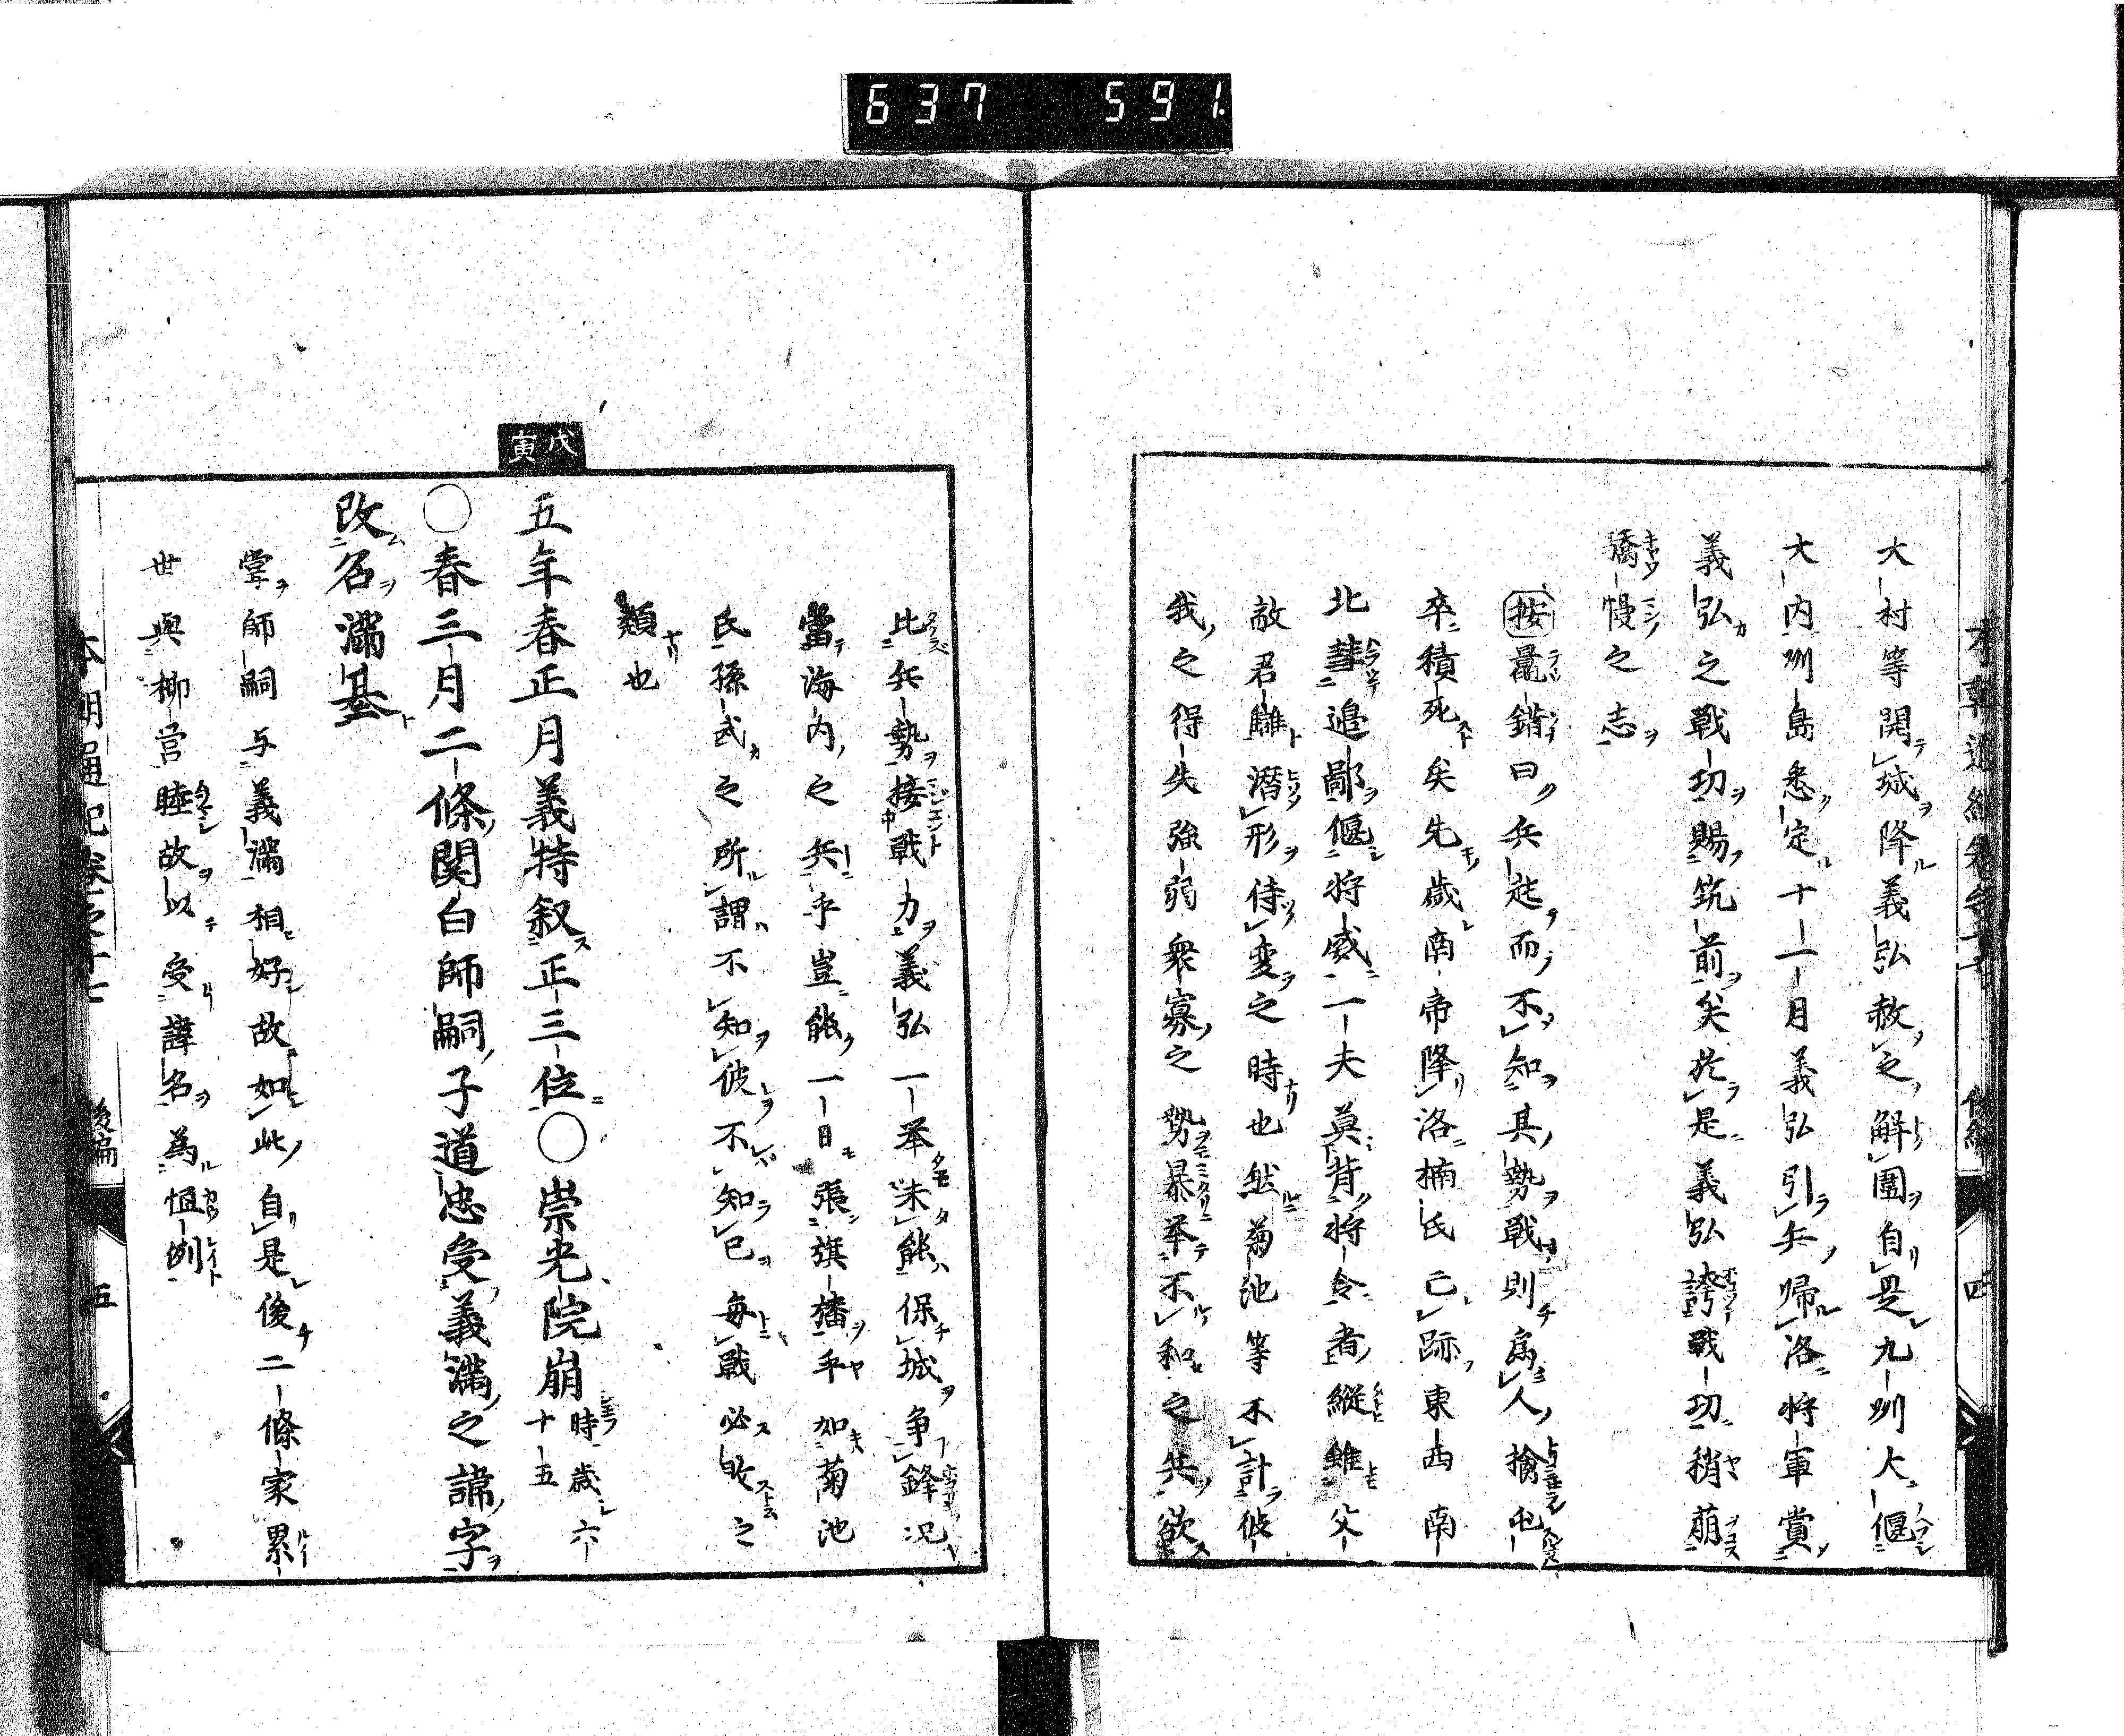 637 591
大村等開城降義弘赦之解圍自是九州大偃
大内州島悉定十一月義弘引兵歸洛将軍賞
義弘之戰功賜筑前矣於是義弘誇戰功稍萠
驕慢之志
按鼂錯曰兵迯而不知其勢戰則為人擒屯
卒積死矣先歳南帝降洛楠氏亡跡東西南
北彗邉鄙偃将威一夫莫背将令者縱雖父
敵君讎潜形待変之時也然菊池等不計彼
我之得失強弱衆寡之勢暴举不和之兵欲
比兵勢接戰力義弘一举未能保城争鋒况
當海内之兵乎豈能一日張旗旙乎如菊池
氏孫武之所謂不知彼不知己毎戰必敗之
類也
戊寅
五年春正月義特叙正三位○崇光院崩時歳六十五
○春三月二條関白師嗣子道忠受義滿之諱字
改名滿基
掌師嗣与義滿相好故如此自是後二條家累
世與柳営睦故以受諱名為恒例
本朝通紀巻之十七 後編 五
四